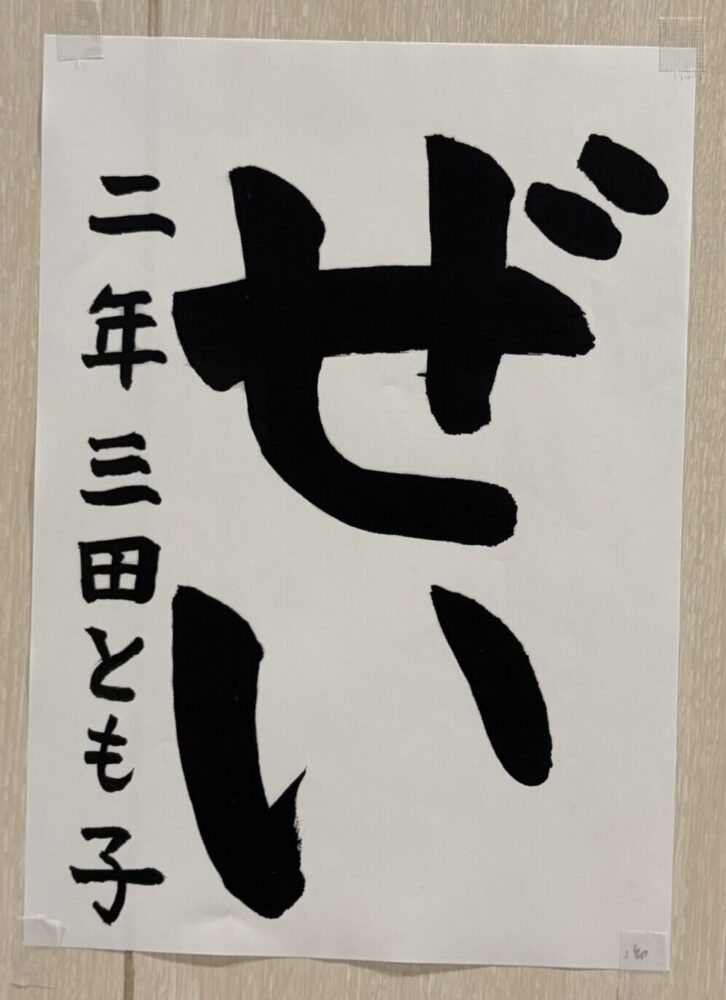 ぜい
二年三田とも子